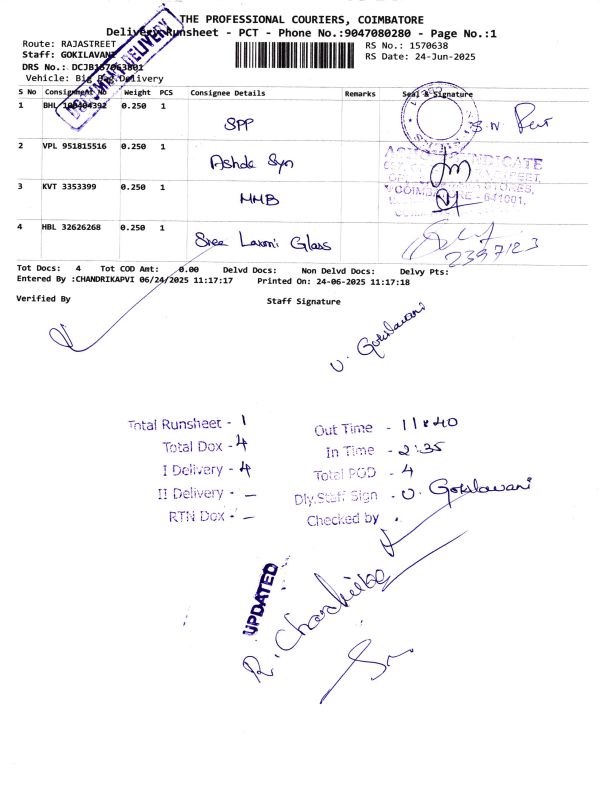 THE PROFESSIONAL COURIERS, COIMBATORE
Delivery Runsheet - PCT - Phone No.:9047080280 - Page No.:1
Route: RAJASTREET
RS No.: 1570638
Staff: GOKILAVANI
RS Date: 24-Jun-2025
DRS No.: DCJB157063801
Vehicle: Big Bag Delivery
DOCUMENT DELIVERY
S No Consignment No Weight PCS Consignee Details Remarks Seal & Signature
1 BHL 0.250 1 SPP
2 VPL 951815516 0.250 1 Ashok Syn
3 KVT 3353399 0.250 1 MMB
4 HBL 32626268 0.250 1 Sree Laxmi Glass
SYNDICATE
STORES,
COIMBATORE - 641001.
2397123
Tot Docs: 4 Tot COD Amt: 0.00 Delvd Docs: Non Delvd Docs: Delvy Pts:
Entered By :CHANDRIKAPVI 06/24/2025 11:17:17 Printed On: 24-06-2025 11:17:18
Verified By Staff Signature
U. Gokilavani
Total Runsheet - 1
Total Dox - 4
I Delivery - 4
II Delivery - —
RTN Dox - —
Out Time - 11:40
In Time - 2:35
Total POD - 4
Dly.Staff Sign - U. Gokilavani
Checked by
UPDATED
R. Chandrika